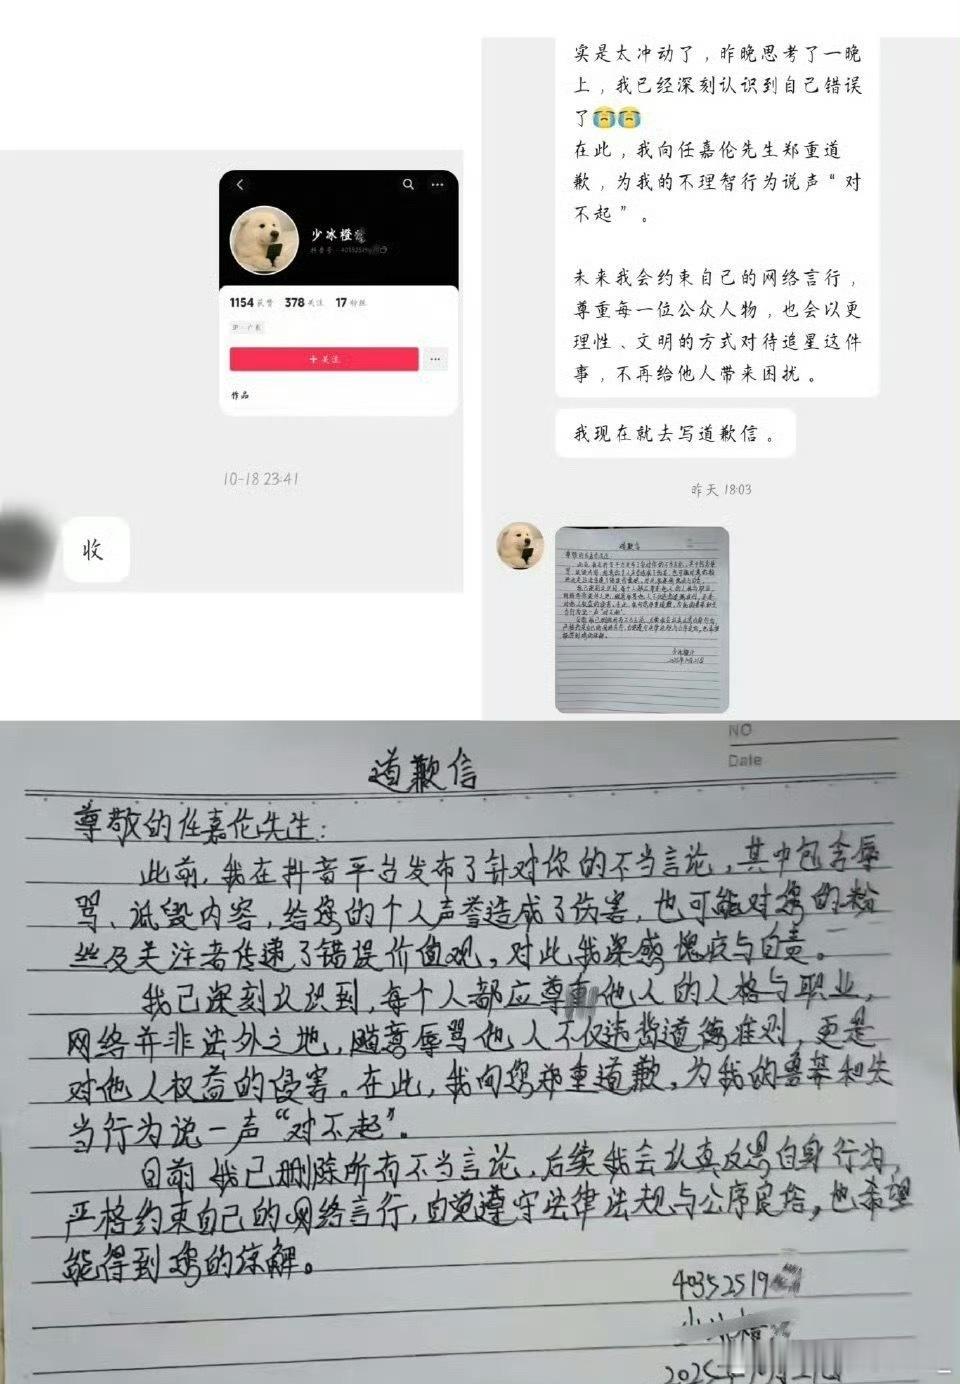 少冰橙
抖音号：40352519
1154 获赞 378 关注 17 粉丝
IP：广东
+ 关注
作品
10-18 23:41
收
实是太冲动了，昨晚思考了一晚
上，我已经深刻认识到自己错误
了😭😭
在此，我向任嘉伦先生郑重道
歉，为我的不理智行为说声“对
不起”。
未来我会约束自己的网络言行，
尊重每一位公众人物，也会以更
理性、文明的方式对待追星这件
事，不再给他人带来困扰。
我现在就去写道歉信。
昨天 18:03
NO
Date
道歉信
尊敬的任嘉伦先生：
此前，我在抖音平台发布了针对你的不当言论，其中包含辱
骂、诋毁内容，给您的个人声誉造成了伤害，也可能对您的粉
丝及关注者传递了错误价值观，对此我深感愧疚与自责。
我已深刻认识到，每个人都应尊重他人的人格与职业，
网络并非法外之地，随意辱骂他人不仅违背道德准则，更是
对他人权益的侵害。在此，我向您郑重道歉，为我的鲁莽和失
当行为说一声“对不起”。
目前我已删除所有不当言论，后续我会认真反思自身行为，
严格约束自己的网络言行，自觉遵守法律法规与公序良俗，也希望
能得到您的谅解。
40352519
少冰橙
2025年